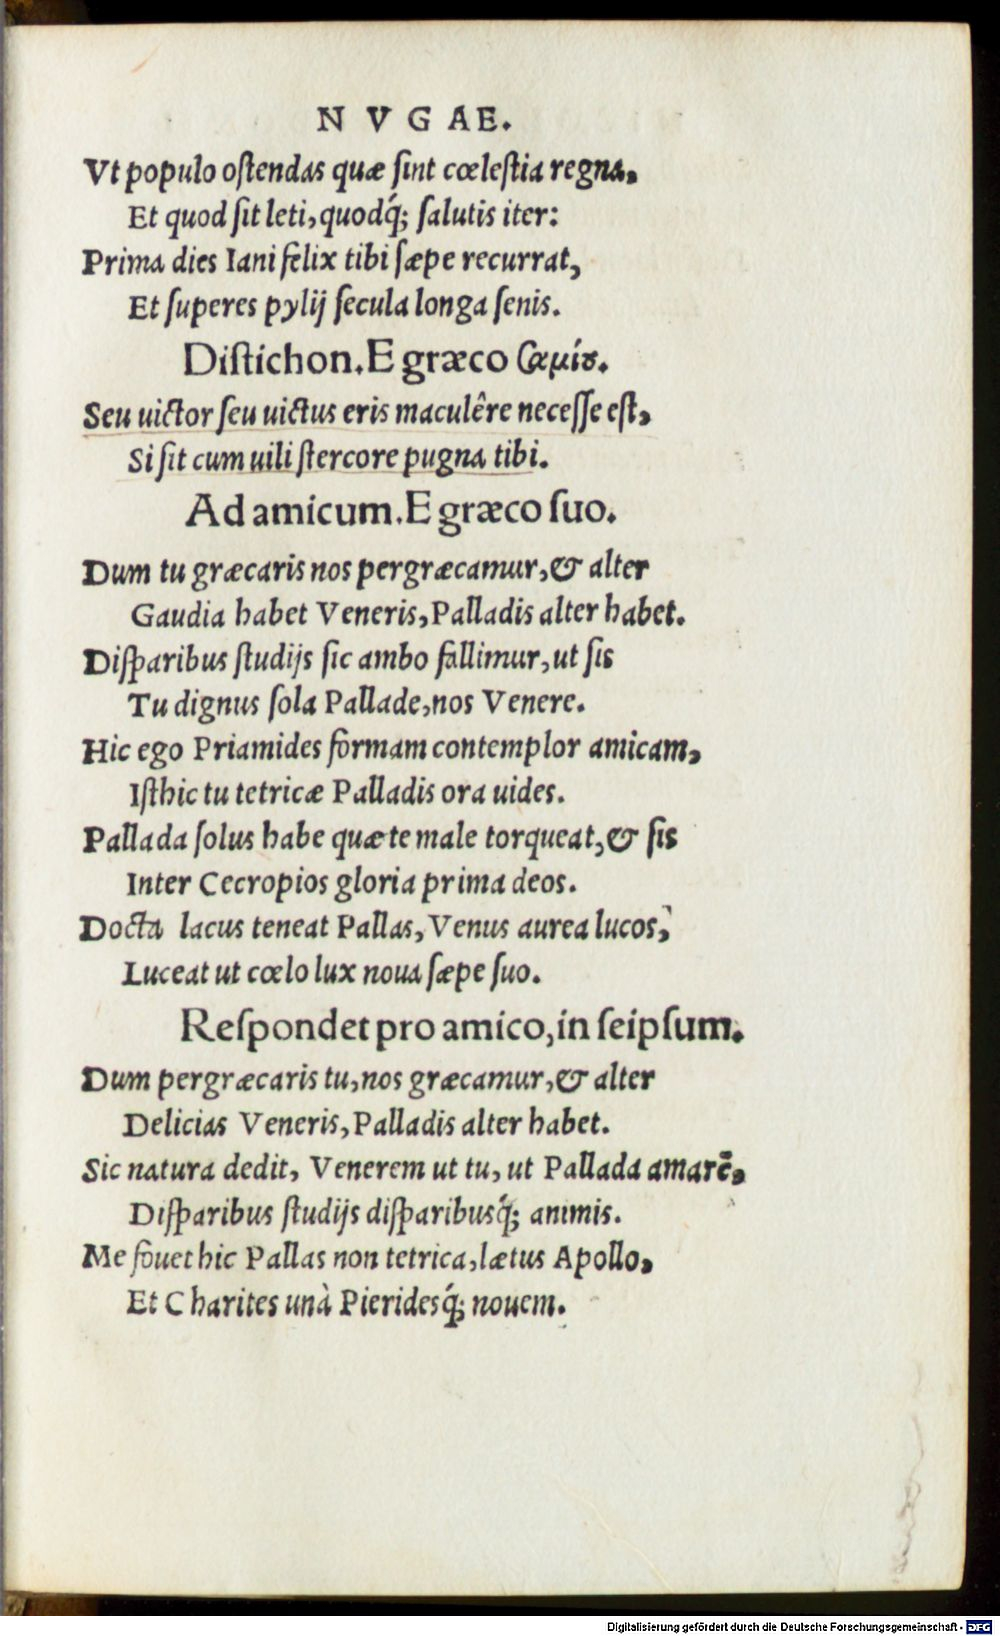 N V G AE.
Vt populo oſtendas quæ ſint cœleſtia regna,
Et quod ſit leti, quodq́; ſalutis iter:
Prima dies Iani felix tibi ſæpe recurrat,
Et ſuperes pylij ſecula longa ſenis.
Diſtichon. E græco
Seu uictor ſeu uictus eris maculêre neceſſe eſt,
Si ſit cum uili ſtercore pugna tibi.
Ad amicum. E græco ſuo.
Dum tu græcaris nos pergræcamur, & alter
Gaudia habet Veneris, Palladis alter habet.
Diſparibus ſtudijs ſic ambo fallimur, ut ſis
Tu dignus ſola Pallade, nos Venere.
Hic ego Priamides formam contemplor amicam,
Iſthic tu tetricæ Palladis ora uides.
Pallada ſolus habe quæ te male torqueat, & ſis
Inter Cecropios gloria prima deos.
Docta lacus teneat Pallas, Venus aurea lucos,
Luceat ut cœlo lux noua ſæpe ſuo.
Reſpondet pro amico, in ſeipſum.
Dum pergræcaris tu, nos græcamur, & alter
Delicias Veneris, Palladis alter habet.
Sic natura dedit, Venerem ut tu, ut Pallada amarē,
Diſparibus ſtudijs diſparibusq́; animis.
Me fouet hic Pallas non tetrica, lætus Apollo,
Et Charites unà Pieridesq́; nouem.
Digitalisierung gefördert durch die Deutsche Forschungsgemeinschaft - DFG